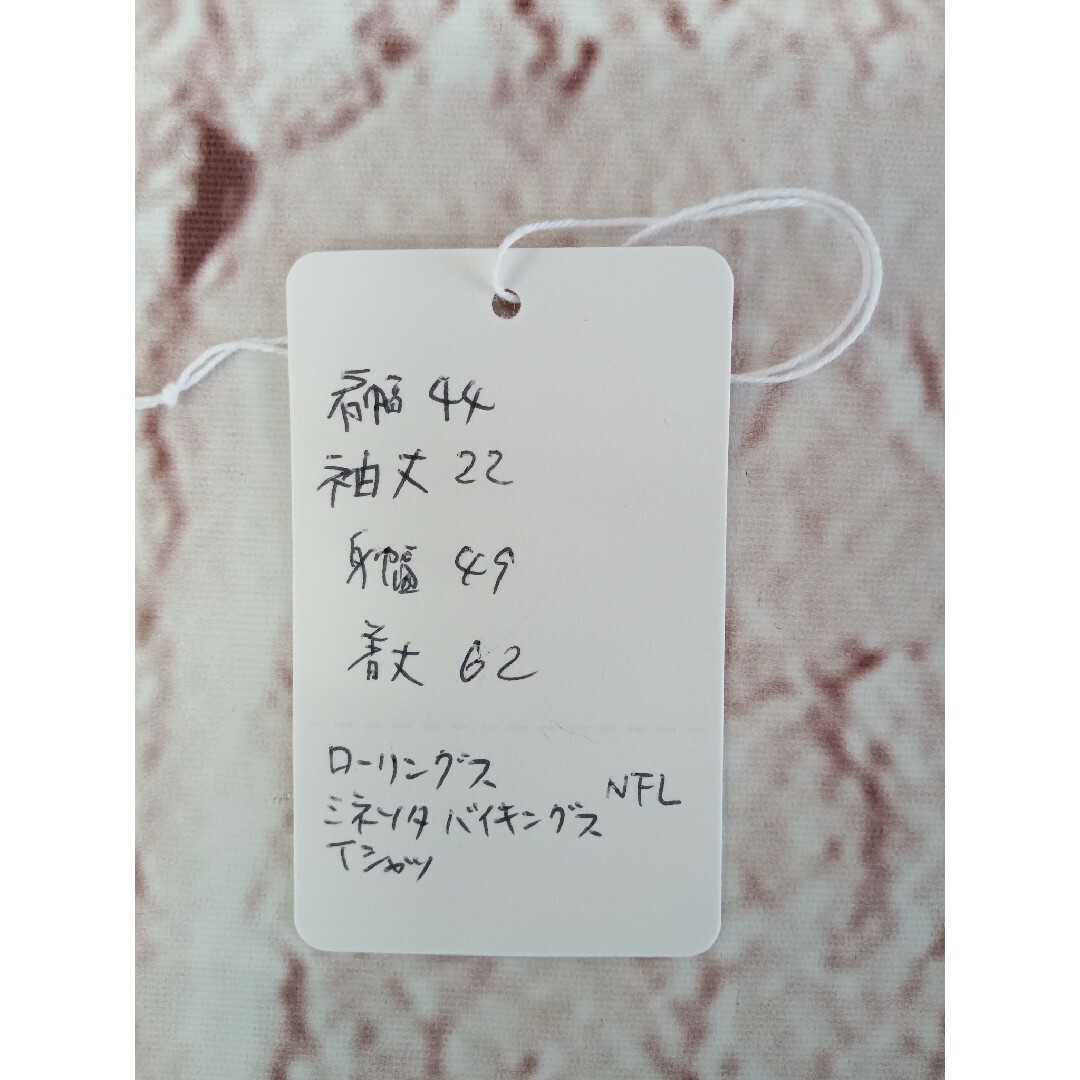 肩幅 44
袖丈 22
身幅 49
着丈 62
ローリングス
NFL
ミネソタ バイキングス
Tシャツ